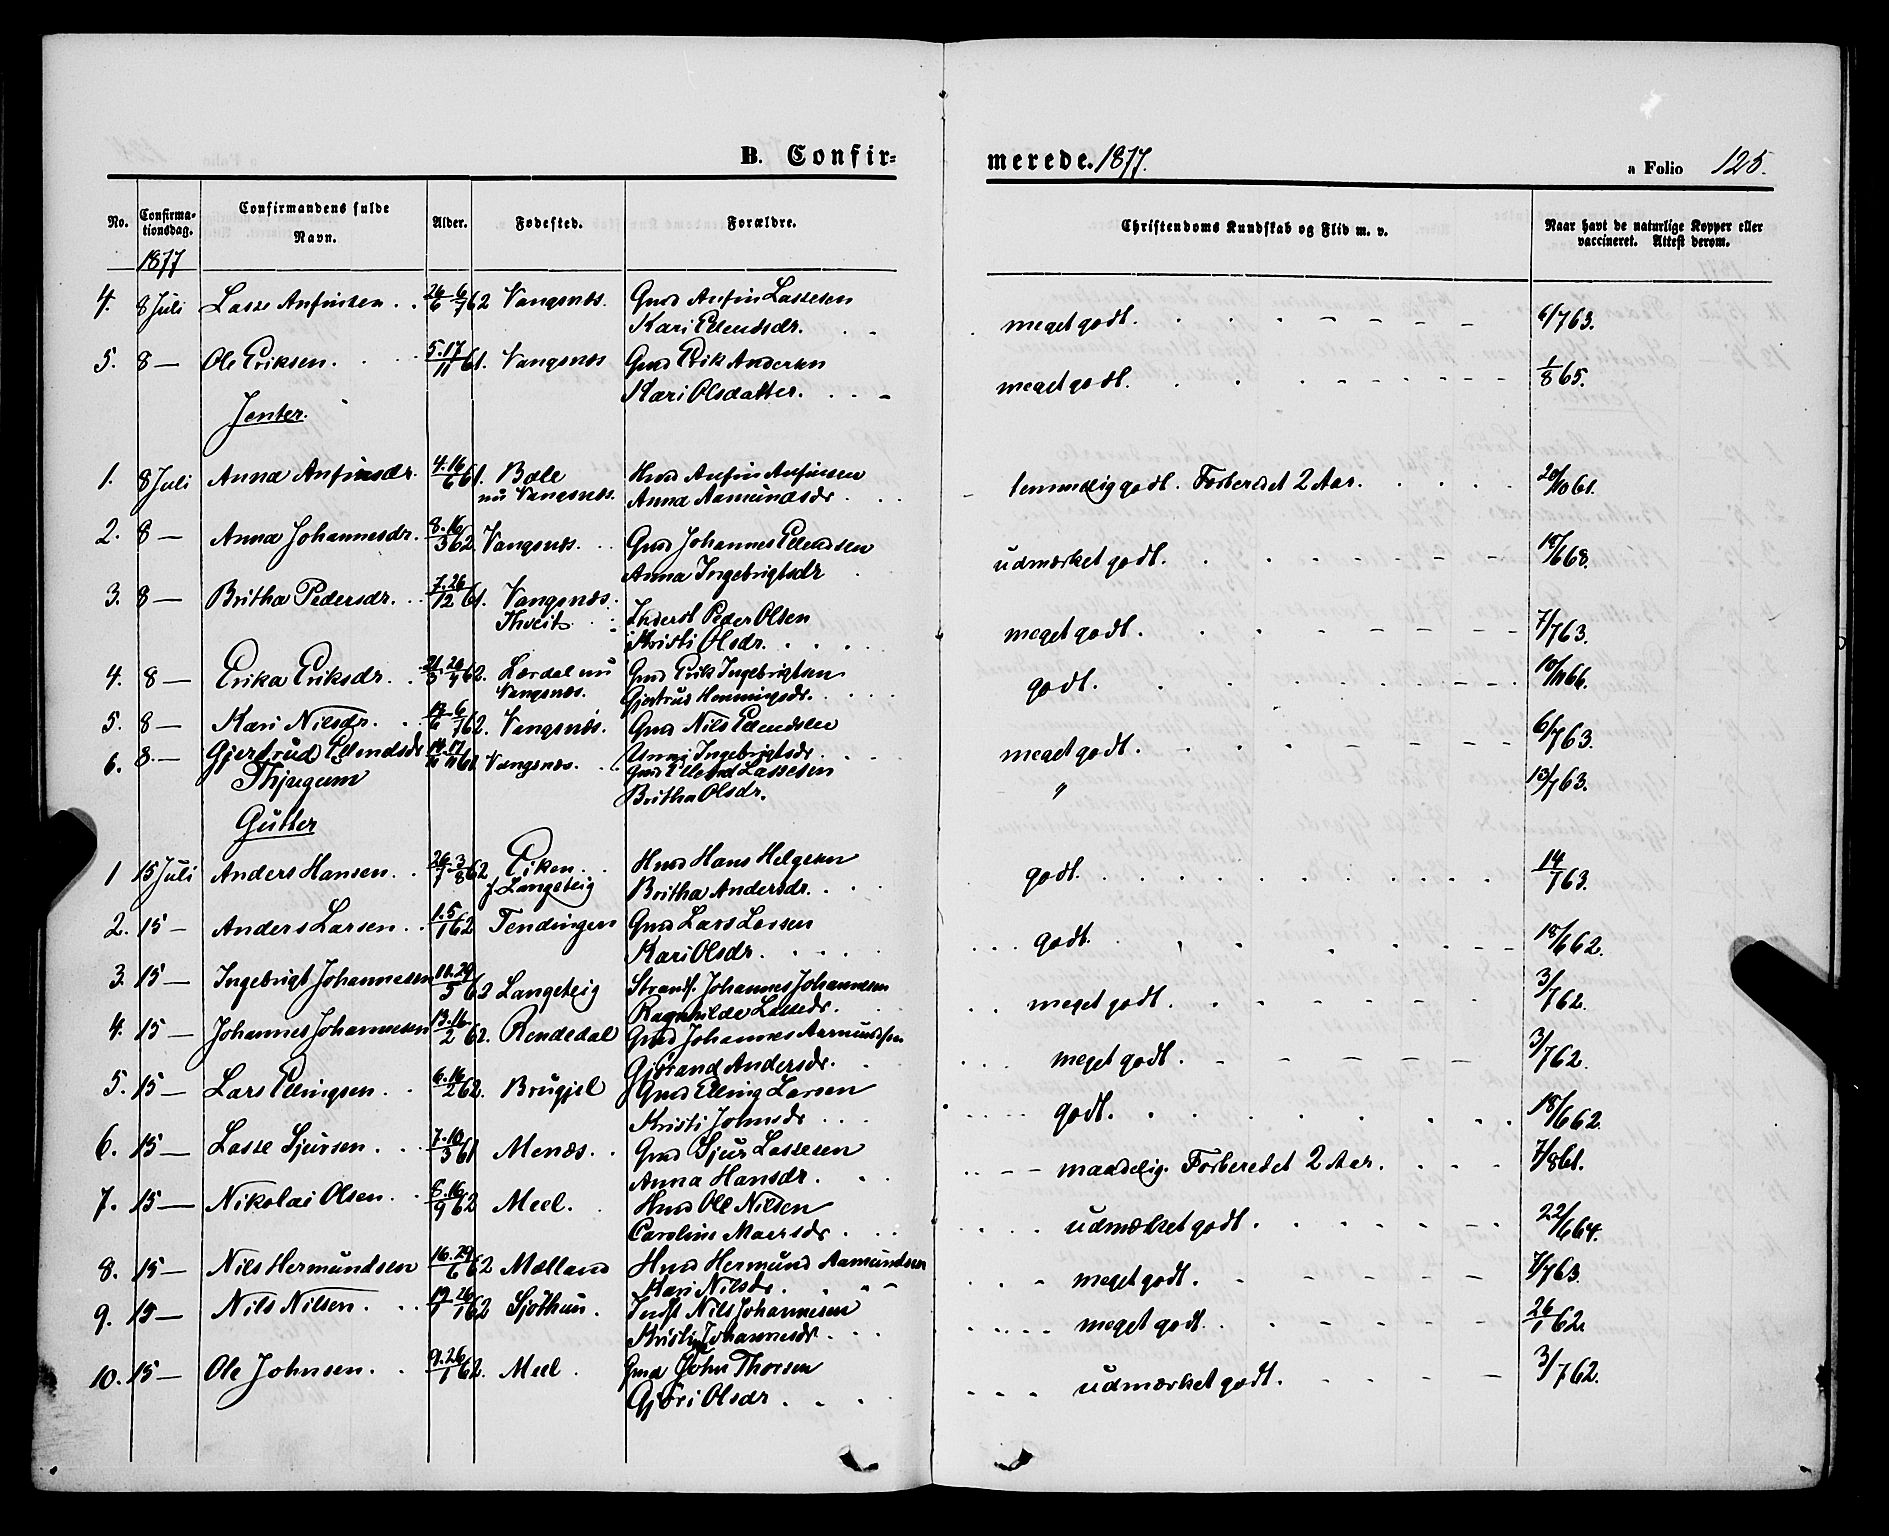 B. Confir=
merede. 1877.
a Folio 125.
No. Confirma-tionsdag. Confirmandens fulde Navn. Alder. Fødested. Forældre. Christendoms Kundskab og Flid m. v. Naar havt de naturlige Kopper eller vaccineret. Attest derom.
1877
4. 8 Juli Lasse Anfinsen . . 26/6 6/7 62 Vangsnæs. Gmd Anfin Lassesen
Kari Ellendsdr. . . meget godt. 6/7 63.
5. 8 — Ole Eriksen. 5.17/11 61. Vangsnæs Gmd Erik Andersen
Kari Olsdatter. . . meget godt. 1/8 65.
Jenter.
1. 8 Juli Anna Anfinsdr. 4.16/6 61. Bale Hmd Anfin Anfinsen
nu Vangsnæs. Anna Aamundsdr . . temmelig godt. Forberedet 2 Aar. 20/10 61.
2. 8 — Anna Johannesdr. 8.16/3 62. Vangsnæs. Gmd Johannes Ellendsen
Anna Ingebrigtsdr udmærket godt. 18/6 68.
3. 8 — Britha Pedersdr. 7.26/12 61. Vangsnæs. Inderst Peder Olsen
Thveit Kristi Olsdr. meget godt. 7/7 63.
4. 8 — Erika Eriksdr. 21/3 26/4 62. Lærdal nu Gmd Erik Ingebrigtsen
Vangsnæs. Gjertrud Henningsdr. godt. 10/11 66.
5. 8 — Kari Nilsdr. 6/7 62. Vangsnæs. Gmd Nils Ellendsen
Anna Ingebrigtsdr. meget godt. 6/7 63.
6. 8. — Gjertrud Ellendsdr 17/11 61 Vangsnæs. Gmd Ellend Lassesen
Thjugum Britha Olsdr. " 13/7 63.
Gutter
1 15 Juli Anders Hansen . . 26/7 3/8 62 Eiken. Hmd Hans Helgesen
f. Langeteig Britha Andersdr. godt. 14/7 63.
2. 15 — Anders Larsen . . 1.5/1 62 Tendingen Gmd Lars Larsen
Kari Olsdr. godt. 18/6 62.
3. 15 — Ingebrigt Johannesen 11.29/5 62 Langeteig Strands. Johannes Johannesen
Ragnhilde Lassedr. meget godt. 3/7 62.
4. 15 — Johannes Johannesen 13.16/2 62. Rendedal Gmd Johannes Aamundsen
Gjørand Andersdr. meget godt. 3/7 62.
5. 15 — Lars Ellingsen . 6.16/2 62. Brugjel Gmd Elling Larsen
Kristi Johnsdr godt. 18/6 62.
6. 15 — Lasse Sjursen . . . 7.10/3 61 Menæs. Gmd Sjur Lassesen
Anna Hansdr. maadelig. Forberedet 2 Aar. 7/8 61.
7. 15 — Nikolai Olsen . . 8.16/9 62 Meel. Hmd Ole Nilsen
Caroline Maersdr. udmærket godt. 22/6 64.
8. 15 — Nils Hermundsen 16.29/6 62 Mælland Hmd Hermund Aamundsen
Kari Nilsdr. meget godt. 7/7 63.
9. 15 — Nils Nilsen. . . 26/1 62 Sjøthun. Indst Nils Johannesen
Kristi Johannesdr. meget godt. 26/1 62.
10. 15 — Ole Johnsen. . . 9.26/1 62. Meel . Gmd John Thorsen
Gjøri Olsdr . udmærket godt. 3/7 62.